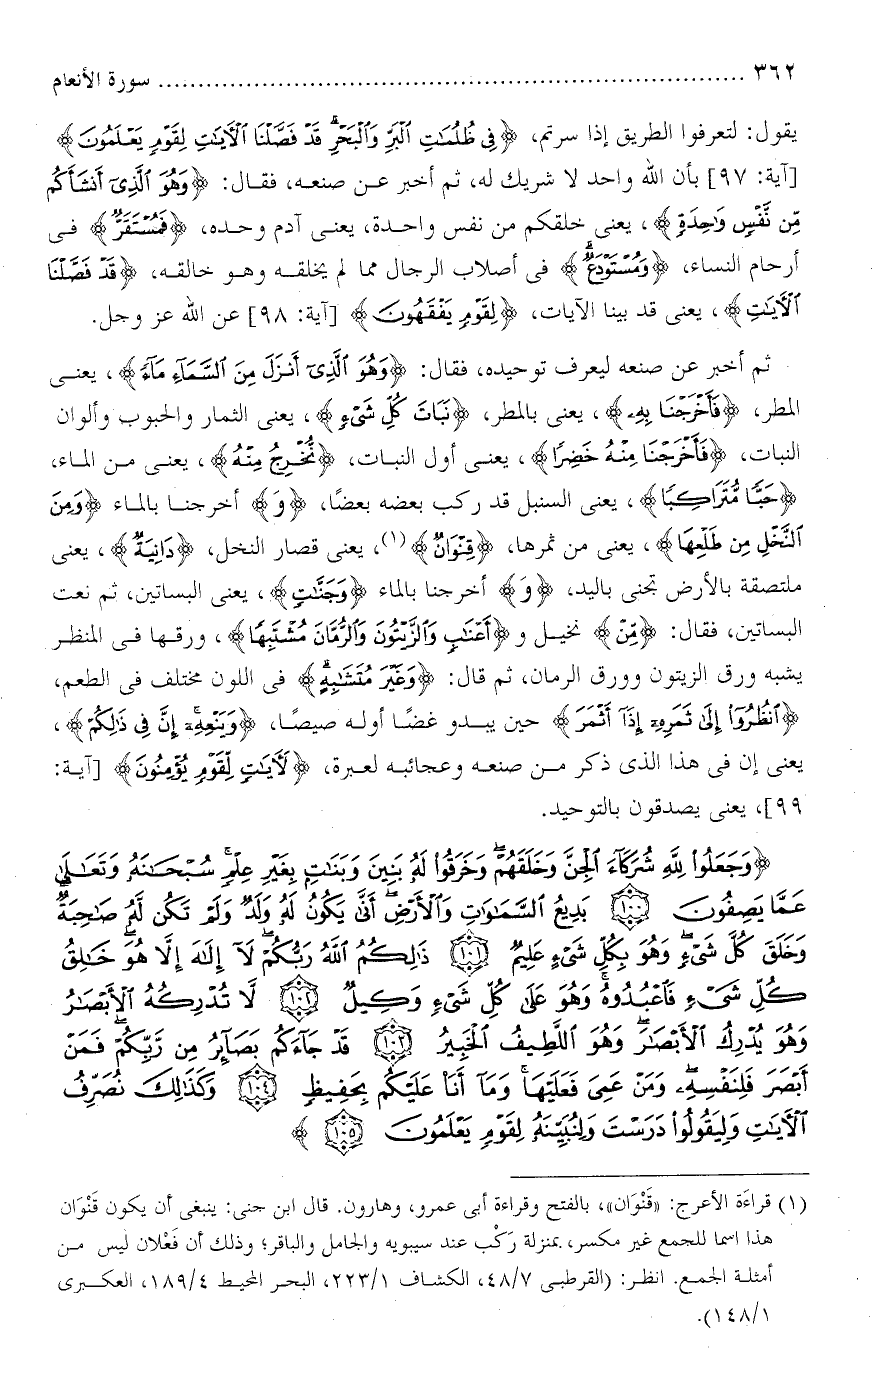 ٣٦٢ ................................................................ سورة الأنعام
يقول: لتعرفوا الطريق إذا سرتم، ﴿فِي ظُلُمَاتِ الْبَرِّ وَالْبَحْرِ قَدْ فَصَّلْنَا الْآيَاتِ لِقَوْمٍ يَعْلَمُونَ﴾
[آية: ٩٧] بأن الله واحد لا شريك له، ثم أخبر عن صنعه، فقال: ﴿وَهُوَ الَّذِي أَنشَأَكُم
مِّن نَّفْسٍ وَاحِدَةٍ﴾، يعنى خلقكم من نفس واحدة، يعنى آدم وحده، ﴿فَمُسْتَقَرٌّ﴾ فى
أرحام النساء، ﴿وَمُسْتَوْدَعٌ﴾ فى أصلاب الرجال مما لم يخلقه وهو خالقه، ﴿قَدْ فَصَّلْنَا
الْآيَاتِ﴾، يعنى قد بينا الآيات، ﴿لِقَوْمٍ يَفْقَهُونَ﴾ [آية: ٩٨] عن الله عز وجل.
ثم أخبر عن صنعه ليعرف توحيده، فقال: ﴿وَهُوَ الَّذِي أَنزَلَ مِنَ السَّمَاءِ مَاءً﴾، يعنى
المطر، ﴿فَأَخْرَجْنَا بِهِ﴾، يعنى بالمطر، ﴿نَبَاتَ كُلِّ شَيْءٍ﴾، يعنى الثمار والحبوب وألوان
النبات، ﴿فَأَخْرَجْنَا مِنْهُ خَضِرًا﴾، يعنى أول النبات، ﴿نُّخْرِجُ مِنْهُ﴾، يعنى من الماء،
﴿حَبًّا مُّتَرَاكِبًا﴾، يعنى السنبل قد ركب بعضه بعضًا، ﴿وَ﴾ أخرجنا بالماء ﴿وَمِنَ
النَّخْلِ مِن طَلْعِهَا﴾، يعنى من ثمرها، ﴿قِنْوَانٌ﴾(١)، يعنى قصار النخل، ﴿دَانِيَةٌ﴾، يعنى
ملتصقة بالأرض تجنى باليد، ﴿وَ﴾ أخرجنا بالماء ﴿وَجَنَّاتٍ﴾، يعنى البساتين، ثم نعت
البساتين، فقال: ﴿مِّنْ﴾ نخيل و﴿أَعْنَابٍ وَالزَّيْتُونَ وَالرُّمَّانَ مُشْتَبِهًا﴾، ورقها فى المنظر
يشبه ورق الزيتون وورق الرمان، ثم قال: ﴿وَغَيْرَ مُتَشَابِهٍ﴾ فى اللون مختلف فى الطعم،
﴿انظُرُوا إِلَىٰ ثَمَرِهِ إِذَا أَثْمَرَ﴾ حين يبدو غضًا أوله صيصًا، ﴿وَيَنْعِهِ إِنَّ فِي ذَٰلِكُمْ﴾،
يعنى إن فى هذا الذى ذكر من صنعه وعجائبه لعبرة، ﴿لَآيَاتٍ لِّقَوْمٍ يُؤْمِنُونَ﴾ [آية:
٩٩]، يعنى يصدقون بالتوحيد.
﴿وَجَعَلُوا لِلَّهِ شُرَكَاءَ الْجِنَّ وَخَلَقَهُمْ وَخَرَقُوا لَهُ بَنِينَ وَبَنَاتٍ بِغَيْرِ عِلْمٍ سُبْحَانَهُ وَتَعَالَىٰ
عَمَّا يَصِفُونَ ١٠٠ بَدِيعُ السَّمَاوَاتِ وَالْأَرْضِ أَنَّىٰ يَكُونُ لَهُ وَلَدٌ وَلَمْ تَكُن لَّهُ صَاحِبَةٌ
وَخَلَقَ كُلَّ شَيْءٍ وَهُوَ بِكُلِّ شَيْءٍ عَلِيمٌ ١٠١ ذَٰلِكُمُ اللَّهُ رَبُّكُمْ لَا إِلَٰهَ إِلَّا هُوَ خَالِقُ
كُلِّ شَيْءٍ فَاعْبُدُوهُ وَهُوَ عَلَىٰ كُلِّ شَيْءٍ وَكِيلٌ ١٠٢ لَّا تُدْرِكُهُ الْأَبْصَارُ
وَهُوَ يُدْرِكُ الْأَبْصَارَ وَهُوَ اللَّطِيفُ الْخَبِيرُ ١٠٣ قَدْ جَاءَكُم بَصَائِرُ مِن رَّبِّكُمْ فَمَنْ
أَبْصَرَ فَلِنَفْسِهِ وَمَنْ عَمِيَ فَعَلَيْهَا وَمَا أَنَا عَلَيْكُم بِحَفِيظٍ ١٠٤ وَكَذَٰلِكَ نُصَرِّفُ
الْآيَاتِ وَلِيَقُولُوا دَرَسْتَ وَلِنُبَيِّنَهُ لِقَوْمٍ يَعْلَمُونَ ١٠٥ ﴾
(١) قراءة الأعرج: «قَنْوَان»، بالفتح وقراءة أبى عمرو، وهارون. قال ابن جنى: ينبغى أن يكون قَنْوَان
هذا اسما للجمع غير مكسر، بمنزلة رَكْب عند سيبويه والجامل والباقر؛ وذلك أن فَعْلان ليس من
أمثلة الجمع. انظر: (القرطبي ٤٨/٧، الكشاف ٢٢٣/١، البحر المحيط ١٨٩/٤، العكبرى
١٤٨/١).